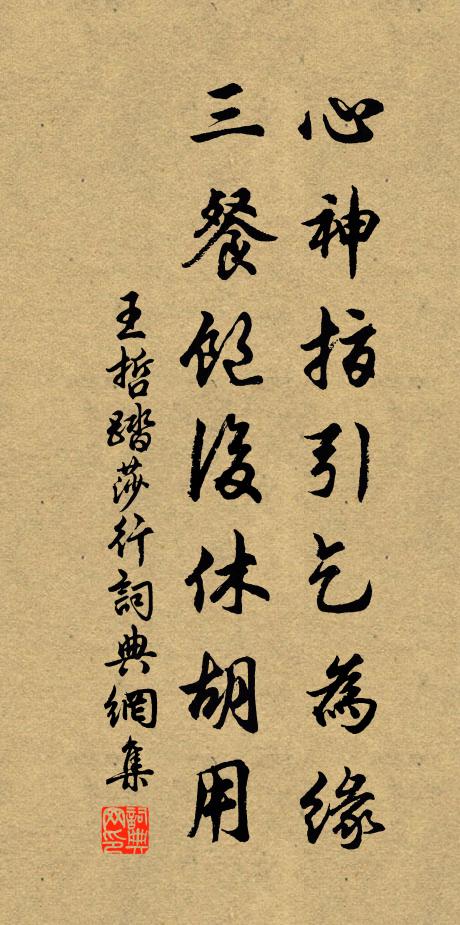 心神指引乞為緣
三餐飽後休胡用
王哲踏莎行詞典網集
詞典网印